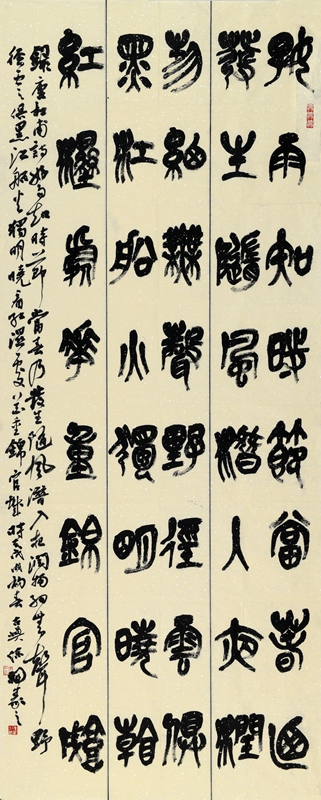 好雨知時節當春迺
發生隨風潛入夜潤
物細無聲野徑雲俱
黑江船火獨明曉看
紅濕處華重錦官城
錄唐杜甫詩好雨知時節當春乃發生隨風潛入夜潤物細無聲野
徑雲俱黑江船火獨明曉看紅濕處花重錦官城時戊戌初春